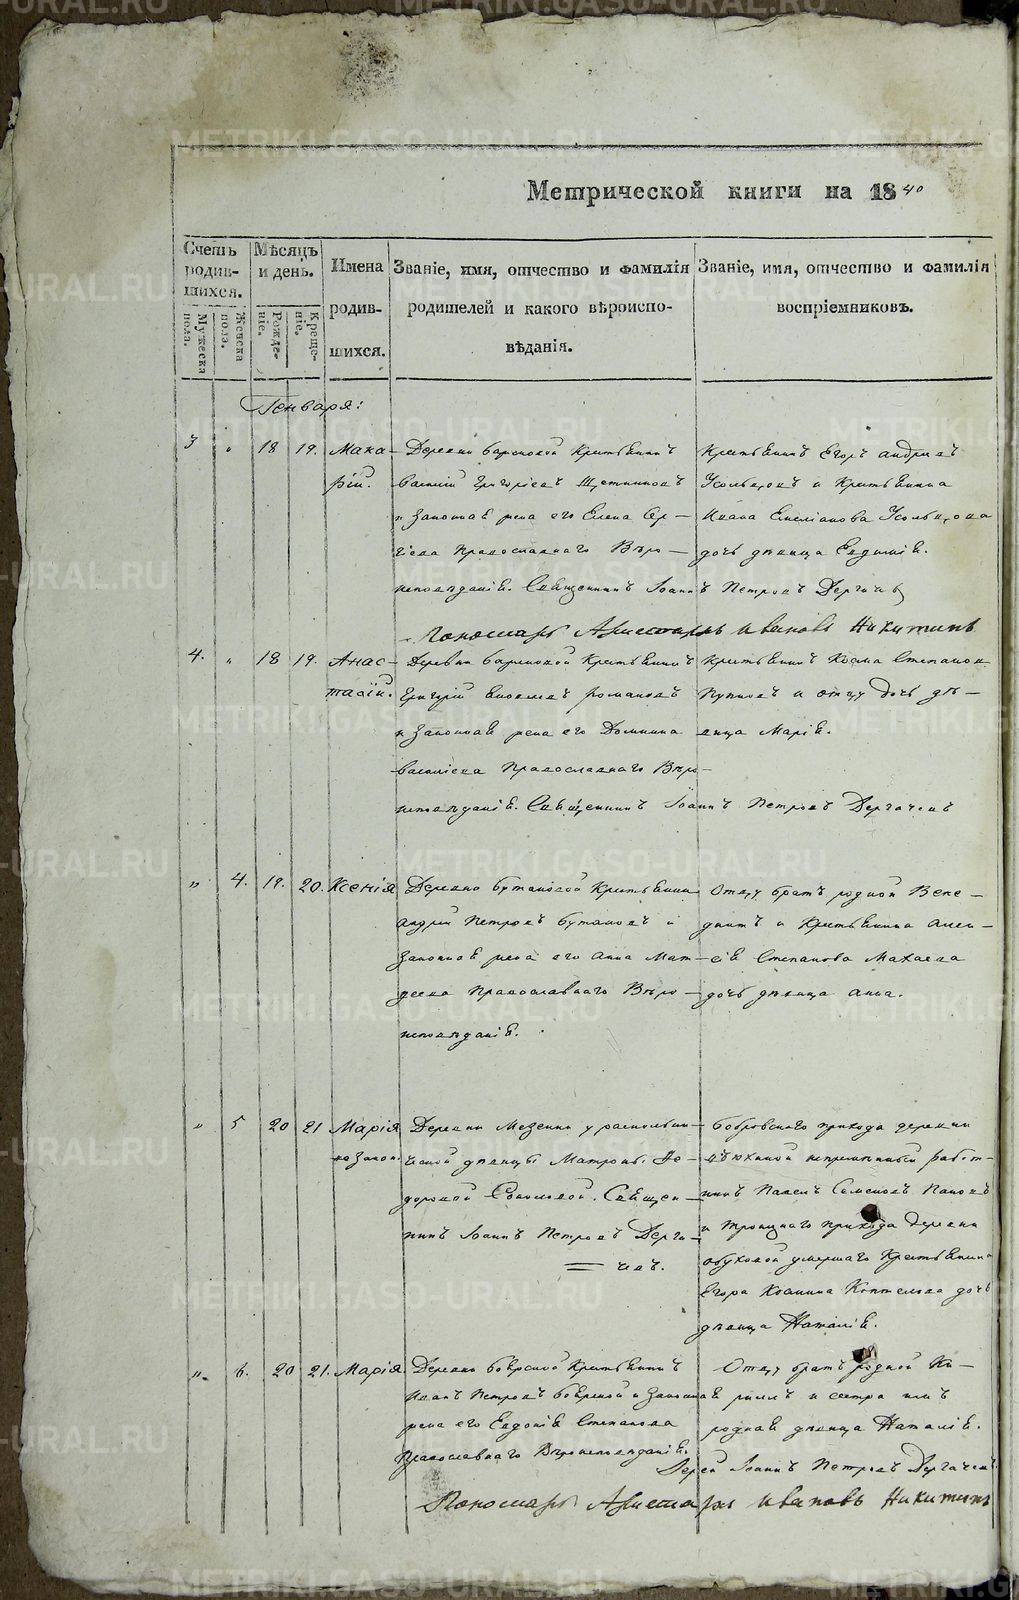 Метрической книги на 1840
Счетъ родив-шихся.
Мужеска пола.
Женска пола.
Мѣсяцъ и день.
Рожде-ніе.
Креще-ніе.
Имена родив-шихся.
Званіе, имя, отчество и фамилія родителей и какого вѣроиспо-вѣданія.
Званіе, имя, отчество и фамилія воспріемниковъ.
Генваря:
3 " 18 19. Мака-рій.
Деревни Крестьянинъ
Василій Григорьевъ Щетниковъ
и Законная жена его Елена Сер-
гіева Православнаго Вѣро-
исповѣданія. Священникъ Іоаннъ Петровъ Дергачевъ
Крестьянинъ Егоръ Андреевъ
Усольцовъ и Крестьянина
Ивана Емеліанова Усольцова
дочь дѣвица Евдокія.
Пономарь Аристархъ Ивановъ Никитинъ
4. " 18 19. Анас-тасій.
Деревни Крестьянинъ
Григорій Яковлевъ Романовъ
и Законная жена его Домнина
Василіева Православнаго Вѣро-
исповѣданія. Священникъ Іоаннъ Петровъ Дергачевъ
Крестьянинъ Козма Степановъ
и отцу дочь дѣ-
вица Марія.
" 4. 19. 20. Ксенія
Деревни Бутаковой Крестьянинъ
Андрей Петровъ Бутаковъ и
Законная жена его Анна Мат-
ѳеева Православнаго Вѣро-
исповѣданія.
Отцу братъ родной Вене-
диктъ и Крестьянина Алек-
сѣя Степанова Махаева
дочь дѣвица Анна.
" 5 20 21 Марія незакон.
Деревни Мезенки у раскольни-
ческой дѣвицы Матроны Ѳе-
доровой Соколовой. Священ-
никъ Іоаннъ Петровъ Дерга-
чевъ.
Бобровскаго прихода деревни
непремѣнный работ-
никъ Павелъ Семеновъ Пановъ
и Троицкаго прихода деревни
Обуховой умершаго Крестьянина
Егора Коптелова дочь
дѣвица Наталія.
" 6. 20 21. Марія.
Деревни Боярской Крестьянинъ
Иванъ Петровъ и Законная
жена его Евдокія Степанова
Православнаго Вѣроисповѣданія.
Отцу братъ родной Ки-
риллъ и сестра имъ
родная дѣвица Наталія.
Іерей Іоаннъ Петровъ Дергачевъ
Пономарь Аристархъ Ивановъ Никитинъ
METRIKI.GASO-URAL.RU